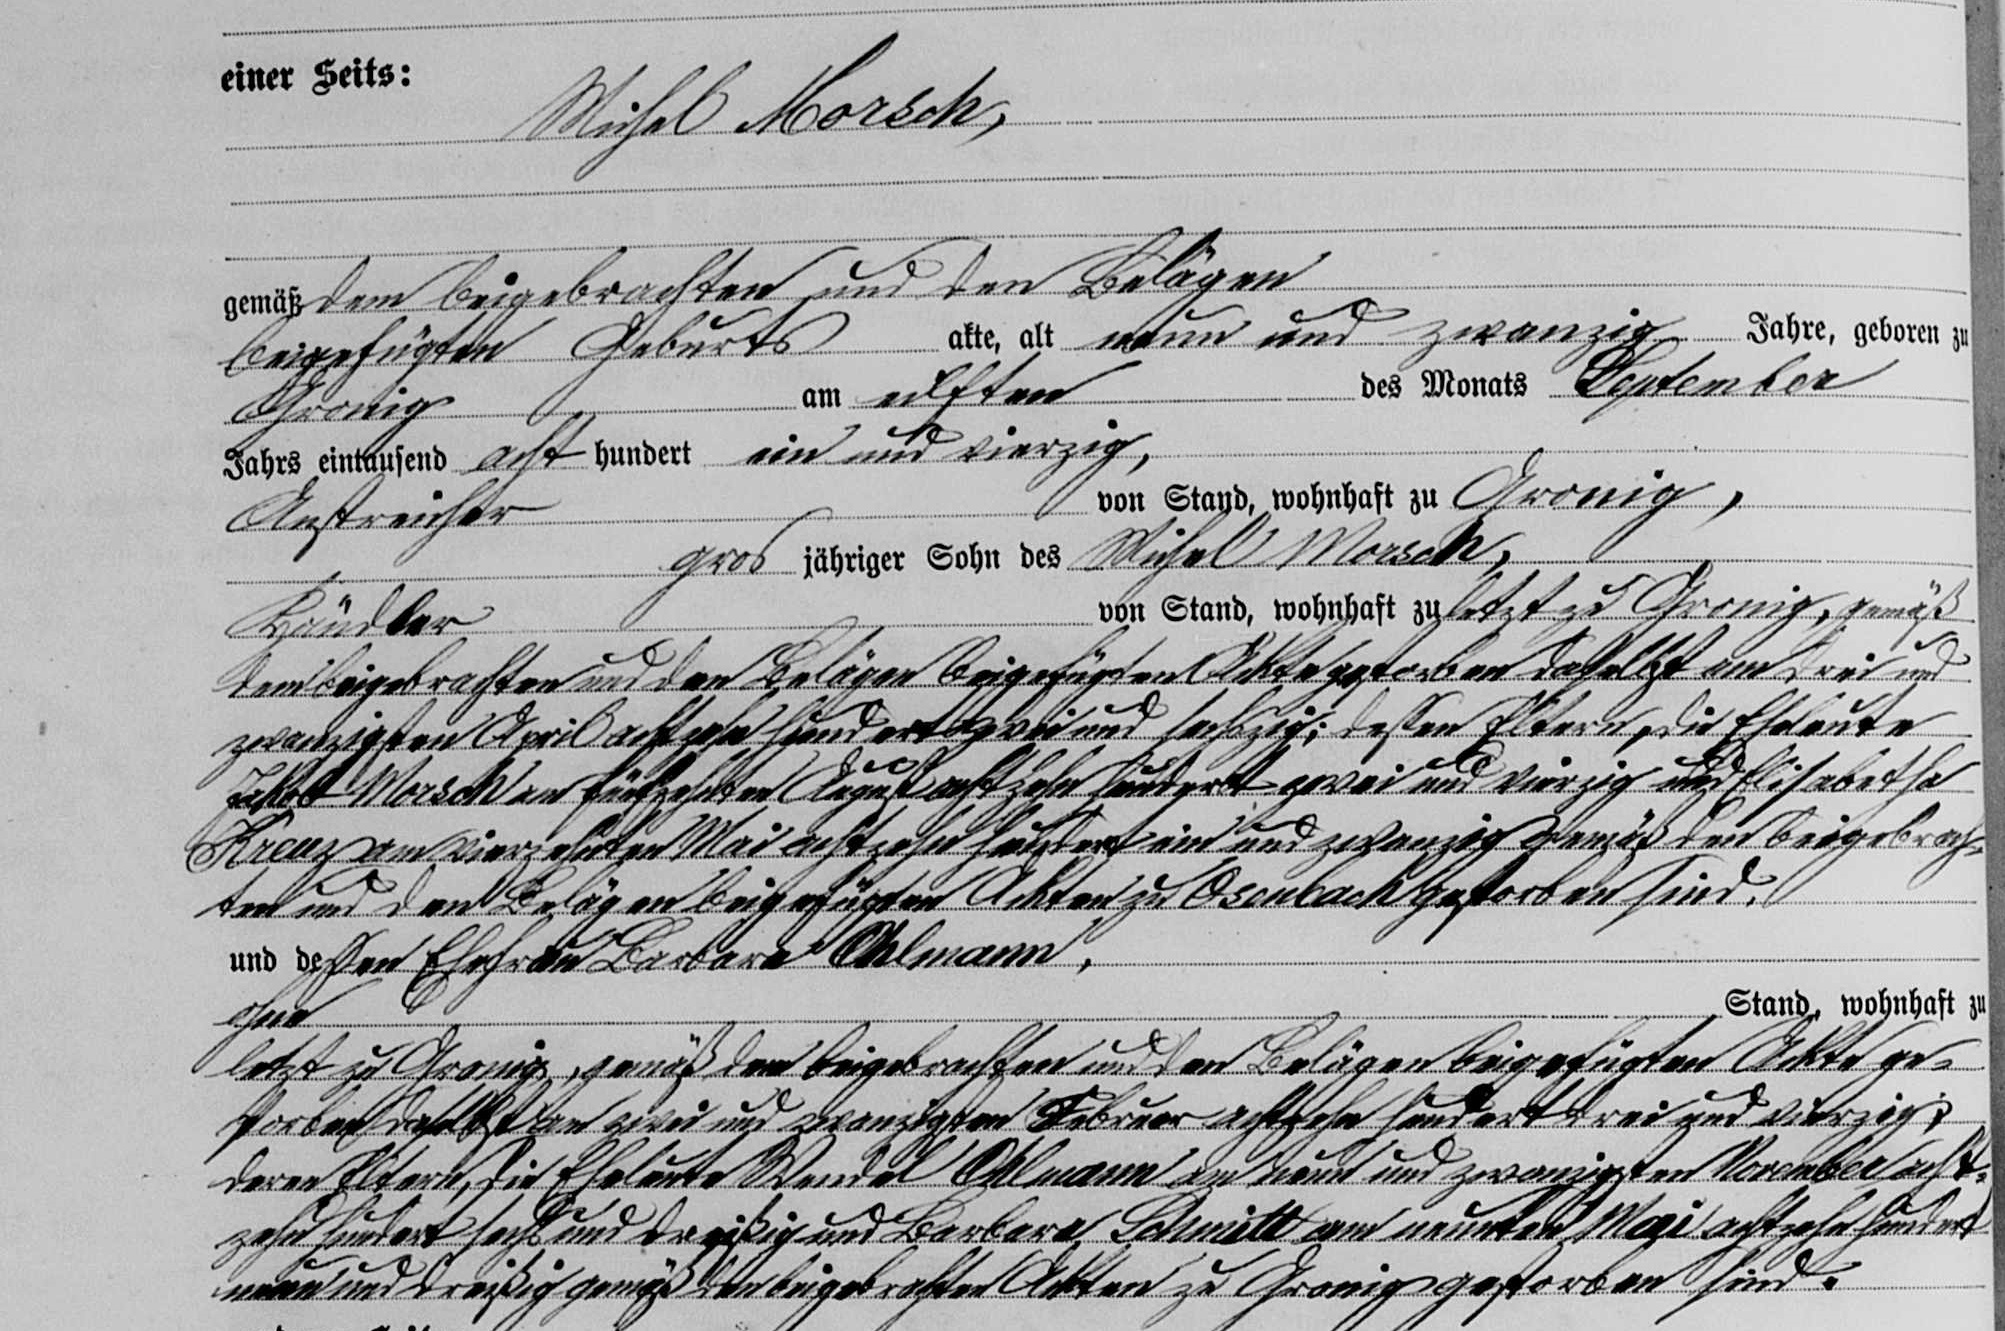 einer Seits:
Michel Morsch,
gemäß dem beigebrachten und den Belägen
beigefügten Geburts akte, alt neun und zwanzig Jahre, geboren zu
Gronig am elften des Monats September
Jahrs eintausend acht hundert ein und vierzig,
Anstreicher von Stand, wohnhaft zu Gronig,
gros jähriger Sohn des Michel Morsch,
Händler von Stand, wohnhaft zu letzt zu Gronig, gemäß
dem beigebrachten und den Belägen beigefügten Akte gestorben daselbst am drei und
zwanzigsten April achtzehn hundert zwei und sechszig; dessen Eltern, die Eheleute
Jakob Morsch am fünfzehnten August achtzehn hundert zwei und vierzig und Elisabetha
Krenz am vierzehnten Mai achtzehn hundert ein und zwanzig gemäß den beigebrach-
ten und den Belägen beigefügten Akten zu Osenbach gestorben sind.
und dessen Ehefrau Barbara Ohlmann,
ohne Stand, wohnhaft zu
letzt zu Gronig, gemäß dem beigebrachten und den Belägen beigefügten Akte ge-
storben daselbst am zwei und zwanzigsten Februar achtzehn hundert drei und vierzig;
deren Eltern, die Eheleute Wendel Ohlmann am neun und zwanzigsten November acht-
zehn hundert sechs und dreißig und Barbara Schmitt am neunten Mai achtzehn hundert
neun und dreißig gemäß den beigebrachten Akten zu Gronig gestorben sind.